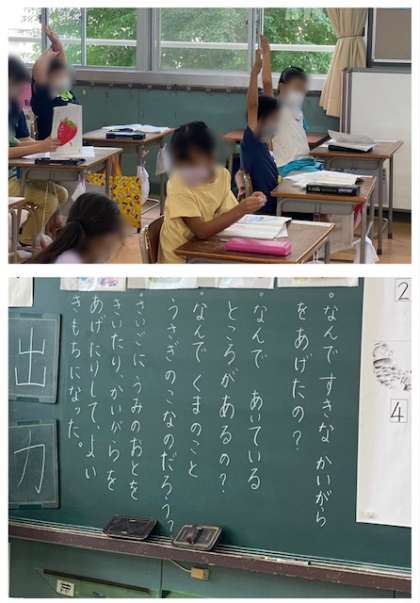 。なんで すきな かいがら
をあげたの？
。なんで あいている
ところがあるの？
。なんで くまのこと
うさぎのこなのだろう？
。さいごに、うみのおとを
きいたり、かいがらを
あげたりして、よい
きもちになった。
出
力
2
4